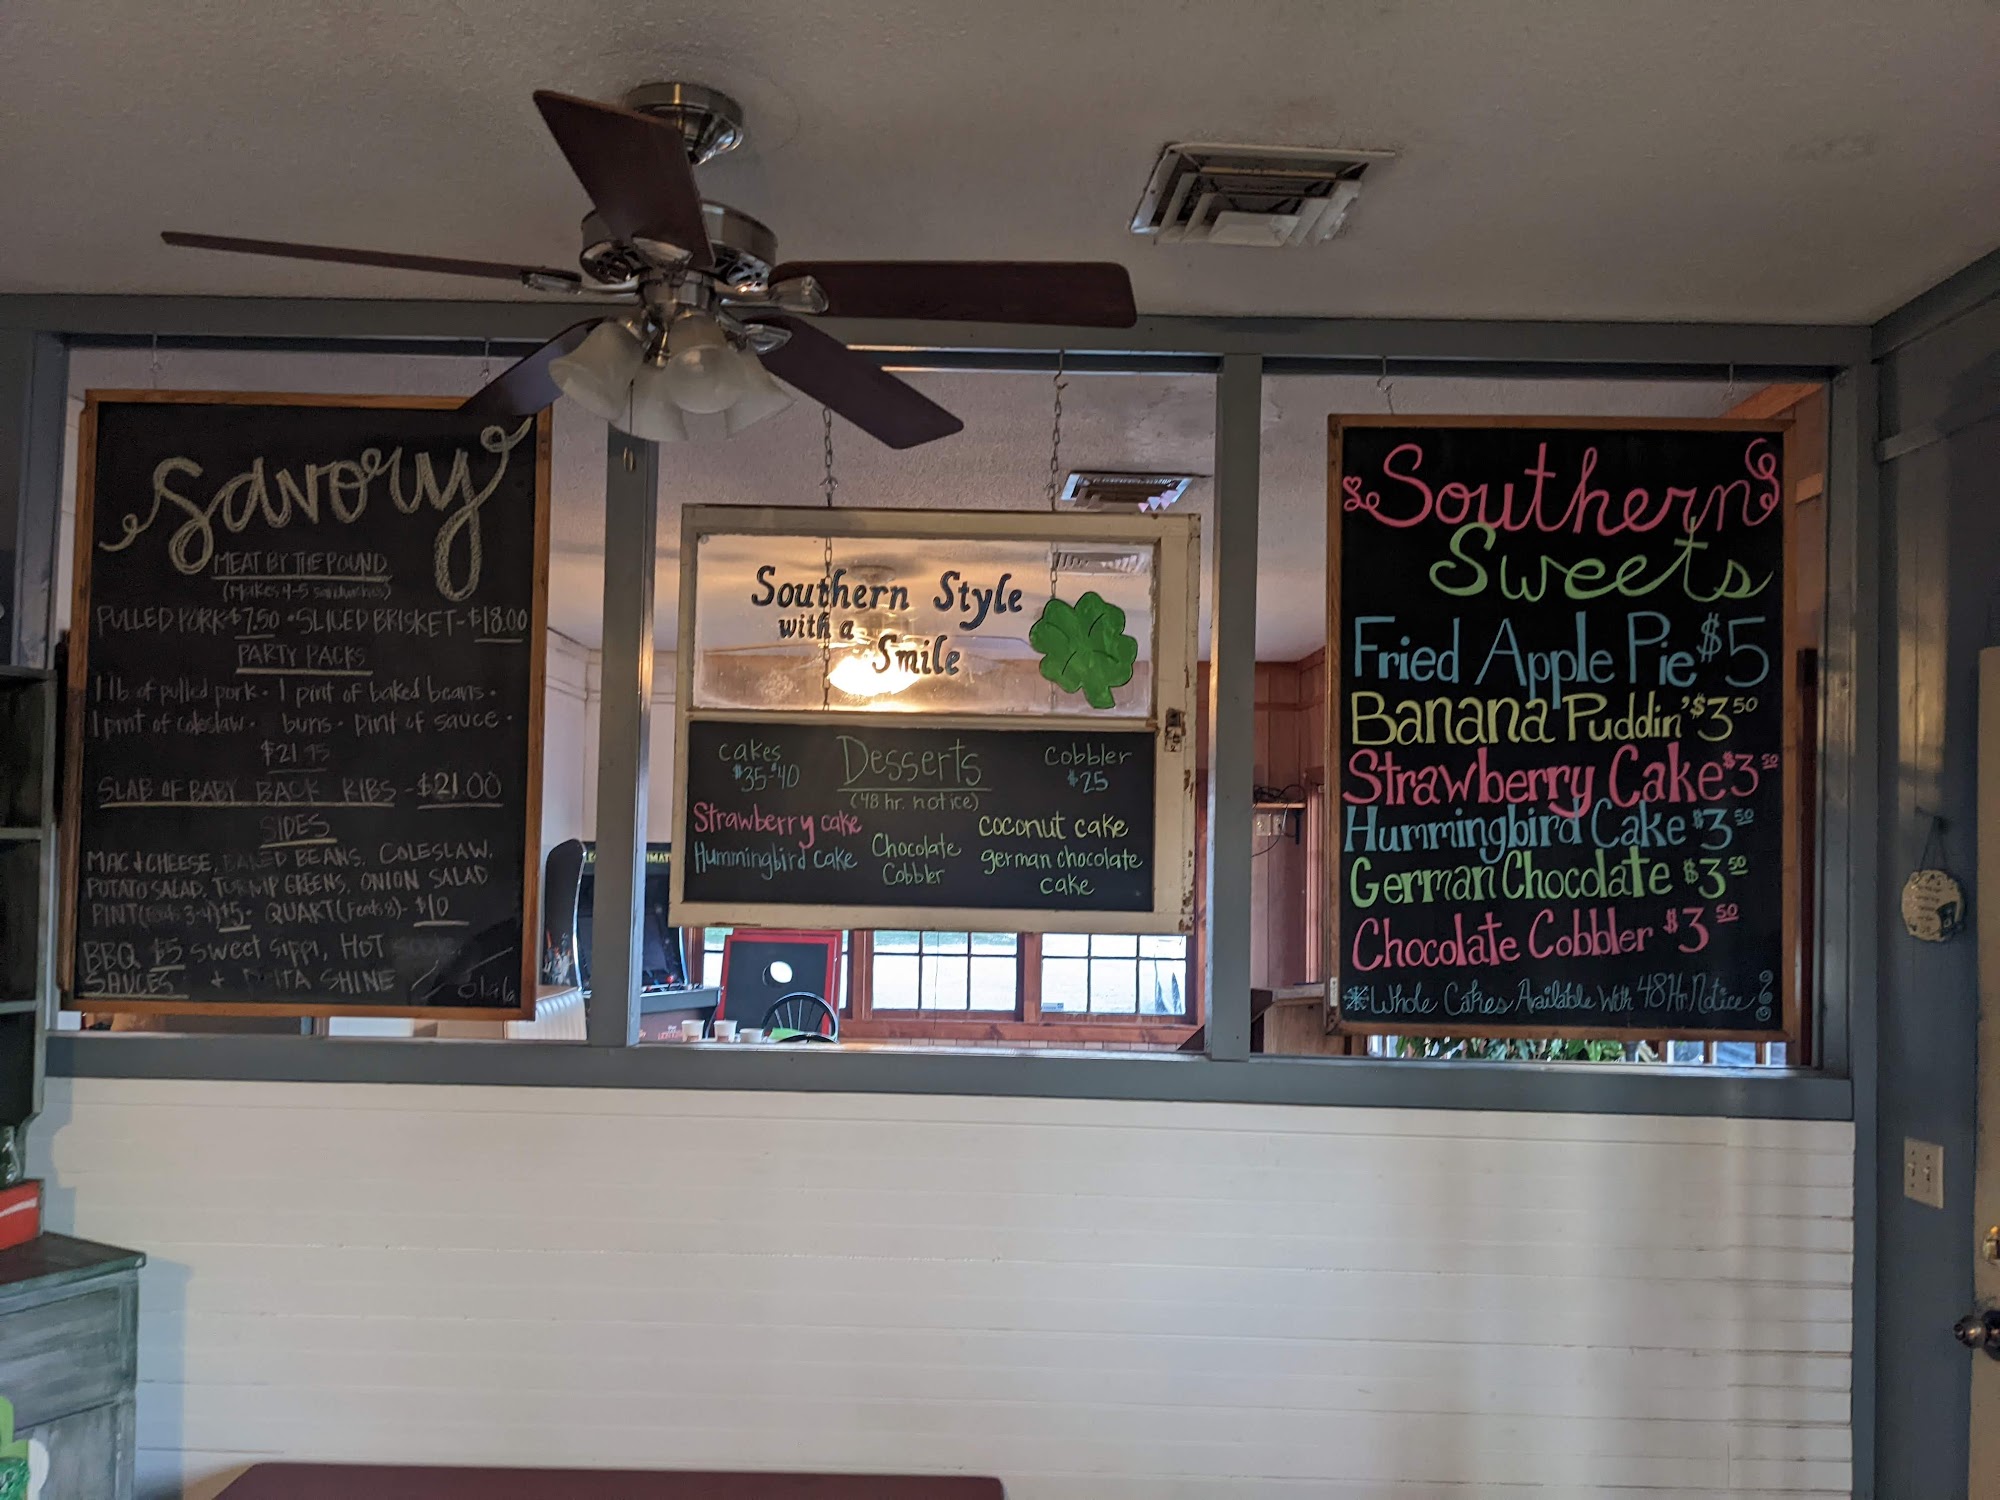 Savory
MEAT BY THE POUND
(Makes 4-5 sandwiches)
PULLED PORK-$7.50 • SLICED BRISKET-$18.00
PARTY PACKS
1 lb of pulled pork • 1 pint of baked beans •
1 pint of coleslaw • buns • pint of sauce •
$21.95
SLAB OF BABY BACK RIBS - $21.00
SIDES
MAC & CHEESE, BAKED BEANS, COLESLAW,
POTATO SALAD, TURNIP GREENS, ONION SALAD
PINT (Feeds 3-4) $5 • QUART (Feeds 8) - $10
BBQ $5 sweet sippi, HOT
SAUCES + DELTA SHINE
Southern Style
with a
Smile
cakes Desserts cobbler
$35-$40 $25
(48 hr. notice)
Strawberry cake coconut cake
Hummingbird Cake Chocolate german chocolate
Cobbler cake
Southern
Sweets
Fried Apple Pie $5
Banana Puddin' $3.50
Strawberry Cake $3.50
Hummingbird Cake $3.50
German Chocolate $3.50
Chocolate Cobbler $3.50
Whole Cakes Available With 48 Hr. Notice